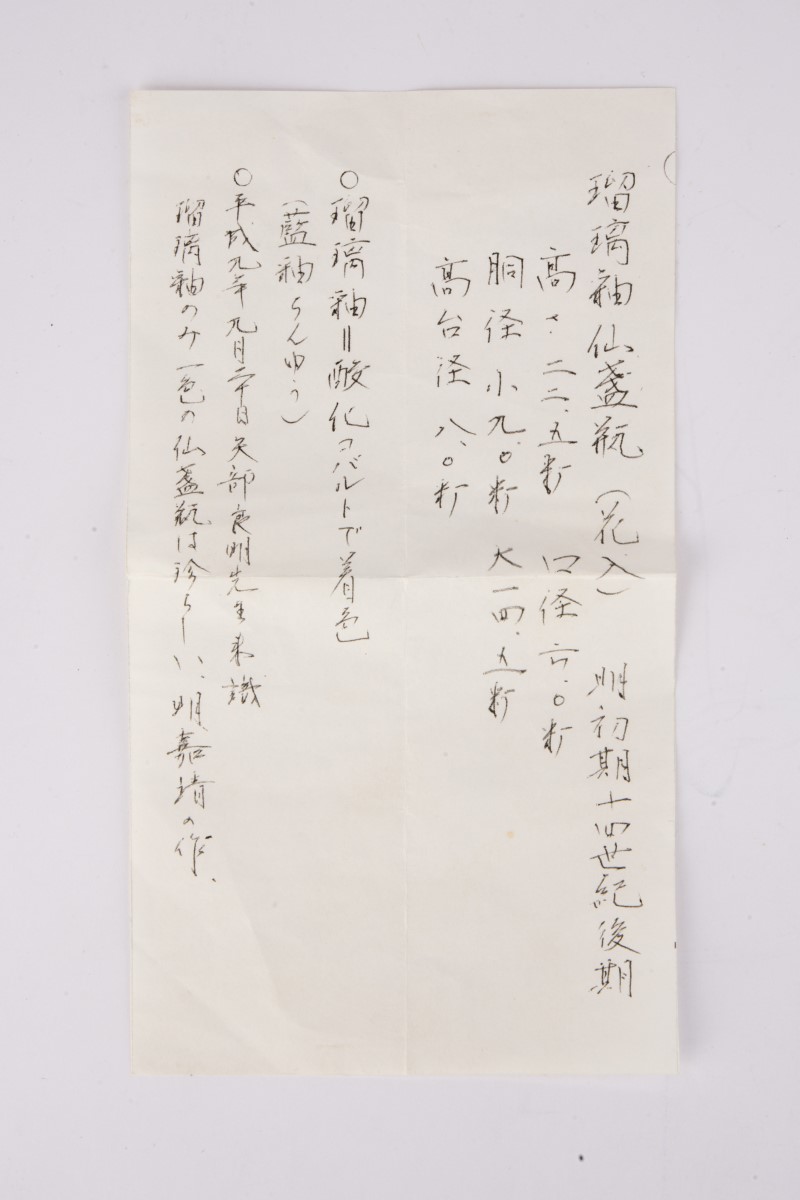 瑠璃釉仙盞瓶(花入) 明初期十四世紀後期
高さ 二二.五糎 口径 六.〇糎
胴径 小九.〇糎 大一四.五糎
高台径 八.〇糎
○瑠璃釉=酸化コバルトで着色
(藍釉らんゆう)
○平成九年九月二十日矢部良明先生来識
瑠璃釉のみ一色の仙盞瓶は珍らしい、明、嘉靖の作、